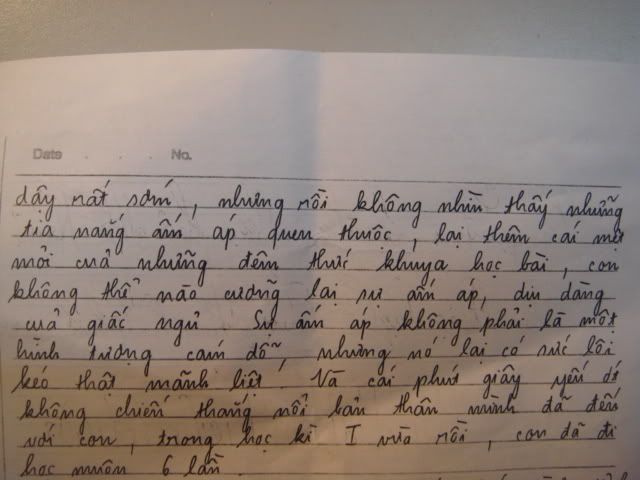 Date . . . No.
dậy rất sớm, nhưng rồi không nhìn thấy những
tia nắng ấm áp quen thuộc, lại thêm cái mệt
mỏi của những đêm thức khuya học bài, con
không thể nào cưỡng lại sự ấm áp, dịu dàng
của giấc ngủ. Sự ấm áp không phải là một
hình tượng cám dỗ, nhưng nó lại có sức lôi
kéo thật mãnh liệt. Và cái phút giây yếu đó
không chiến thắng nổi bản thân mình đã đến
với con, trong học kì I vừa rồi, con đã đi
học muộn 6 lần.